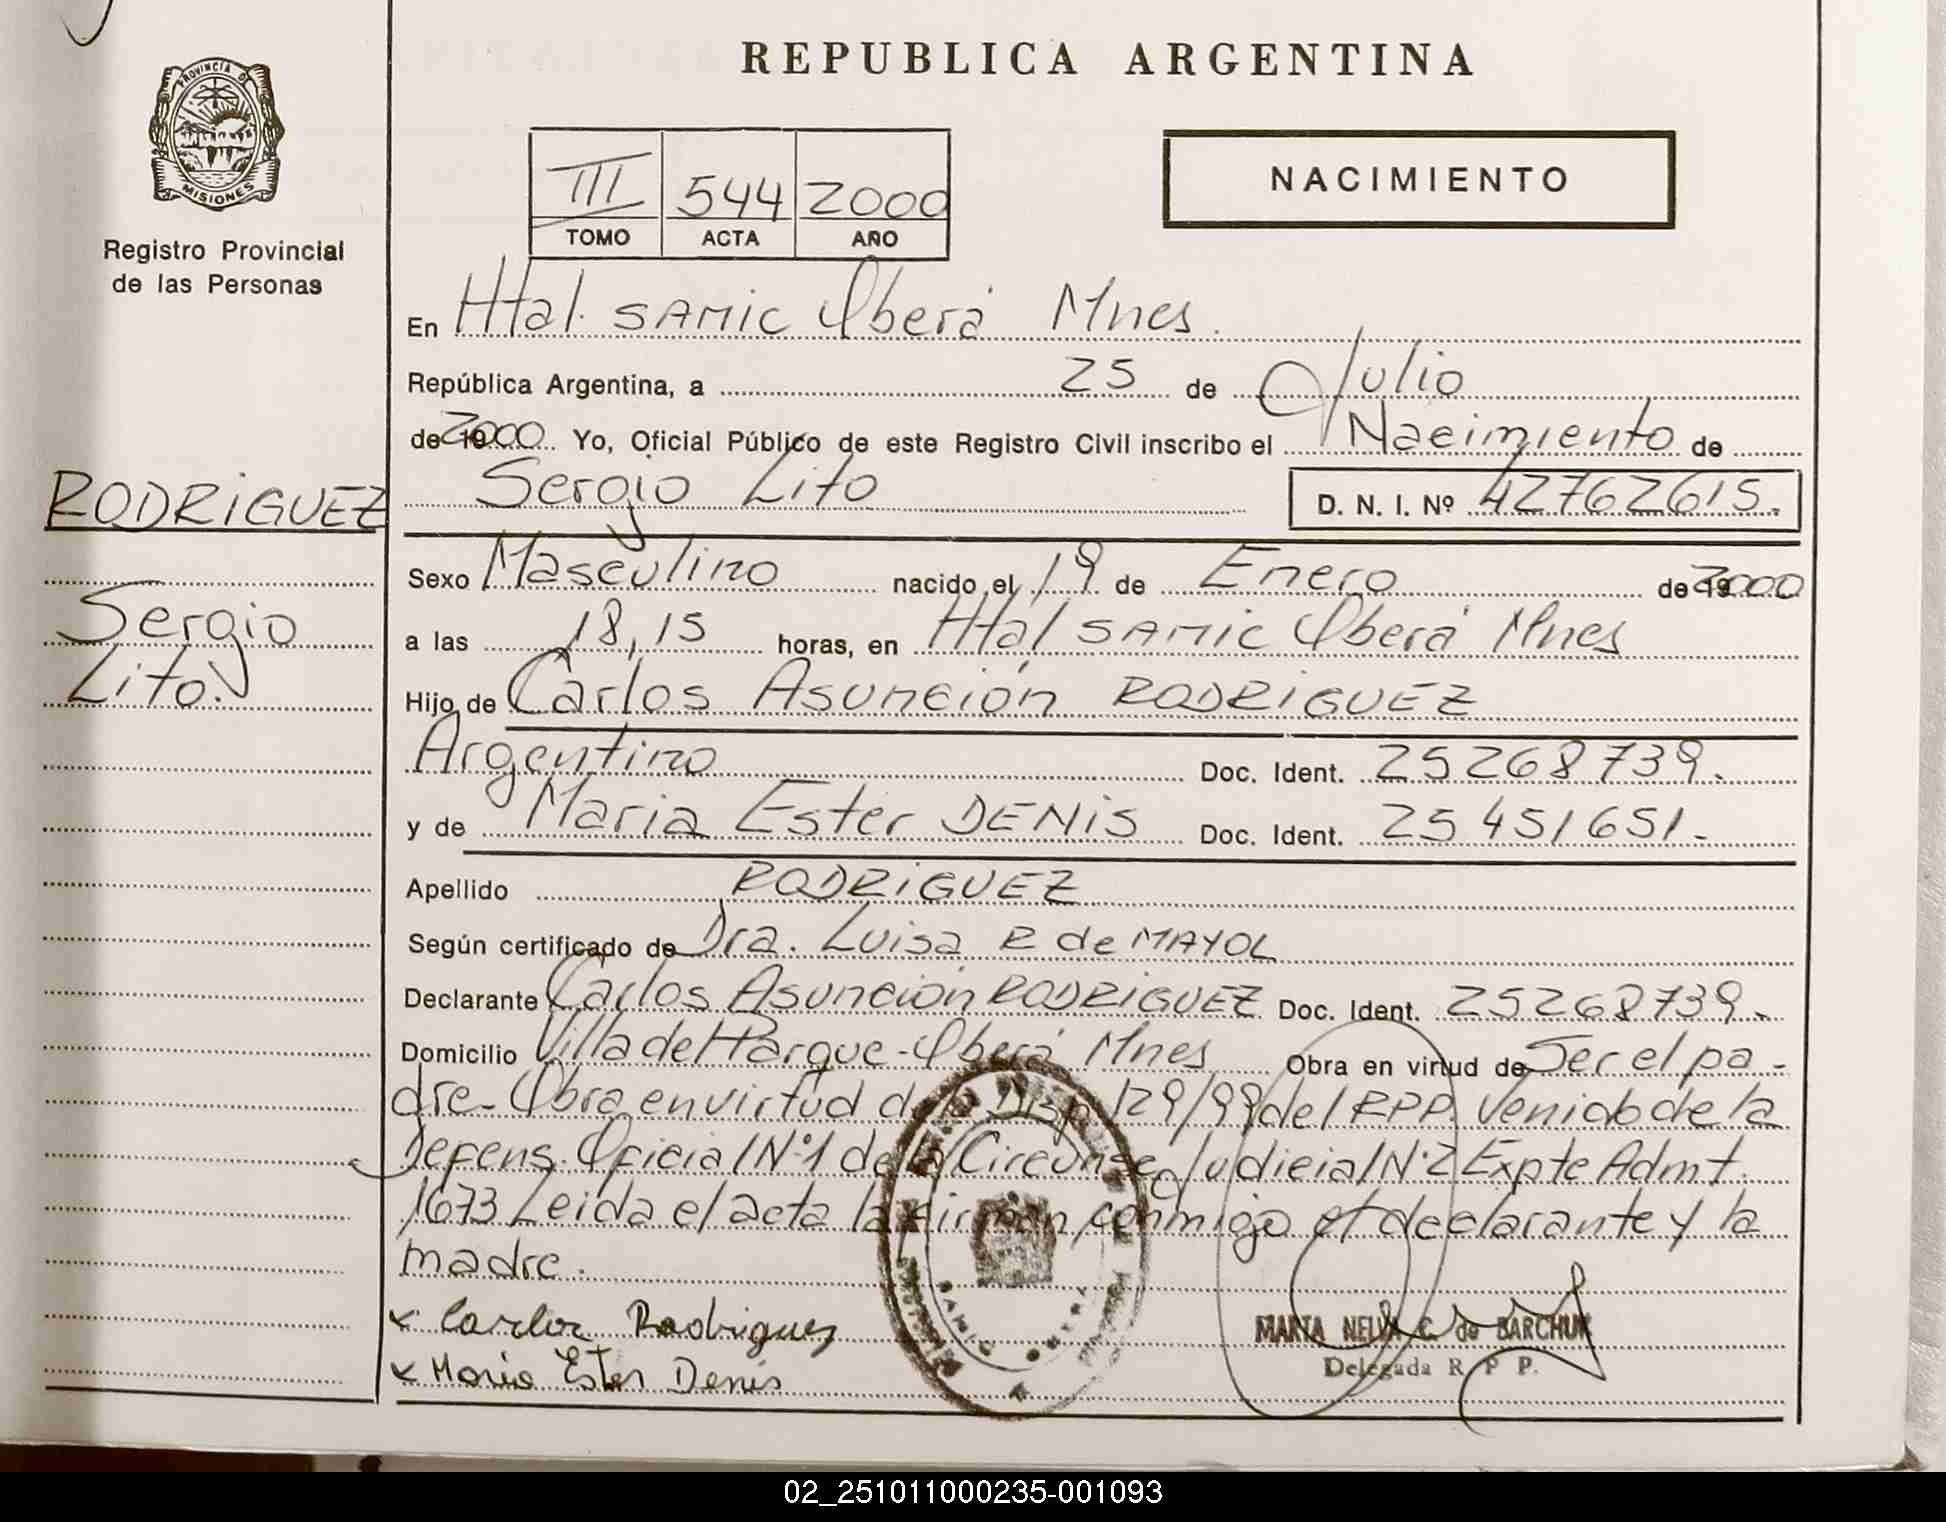 REPUBLICA ARGENTINA
PROVINCIA D
MISIONES
Registro Provincial
de las Personas
III 544 2000
TOMO ACTA AÑO
NACIMIENTO
En Htal. SAMIC Oberá Mnes.
República Argentina, a 25 de Julio
de 2000 Yo, Oficial Público de este Registro Civil inscribo el Nacimiento de
Sergio Lito D. N. I. Nº 42762615.
RODRIGUEZ
Sergio
Lito.
Sexo Masculino nacido el 19 de Enero de 2000
a las 18,15 horas, en Htal SAMIC Oberá Mnes
Hijo de Carlos Asunción RODRIGUEZ
Argentino Doc. Ident. 25268739.
y de Maria Ester DENIS Doc. Ident. 25451651.-
Apellido RODRIGUEZ
Según certificado de Dra. Luisa R de MAYOL
Declarante Carlos Asunción RODRIGUEZ Doc. Ident. 25268739.
Domicilio Villa del Parque - Oberá Mnes Obra en virtud de Ser el pa-
dre- Obra en virtud de Disp 129/99 del RPP. Veniado de la
Defens. Oficial Nº1 de la Circunsc Judicial Nº2 Expte Admt.
1673 Leida el acta la firman conmigo el declarante y la
madre.
Carlos Rodriguez
Maria Ester Denis
MARTA NELVA C. de BARCHUK
Delegada R P P.
02_251011000235-001093